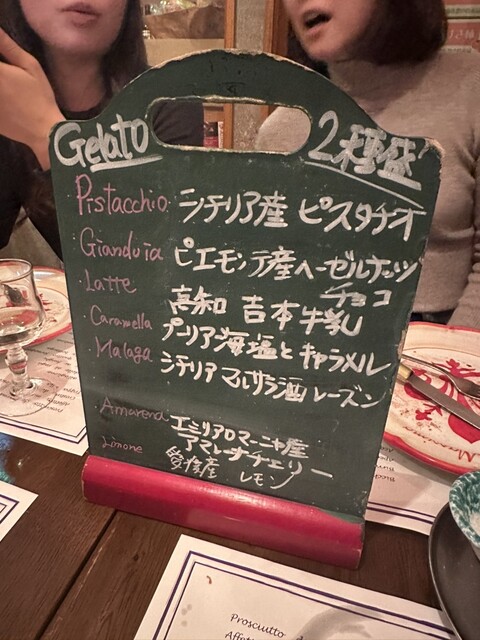 Gelato 2種盛
Pistacchio シチリア産 ピスタチオ
Gianduia ピエモンテ産ヘーゼルナッツ
チョコ
Latte 高知 吉本牛乳
Caramella プーリア海塩とキャラメル
Malaga シチリア マルサラ酒レーズン
Amarena エミリアロマーニャ産
アマレーナチェリー
Limone 愛媛産 レモン
Prosciutto